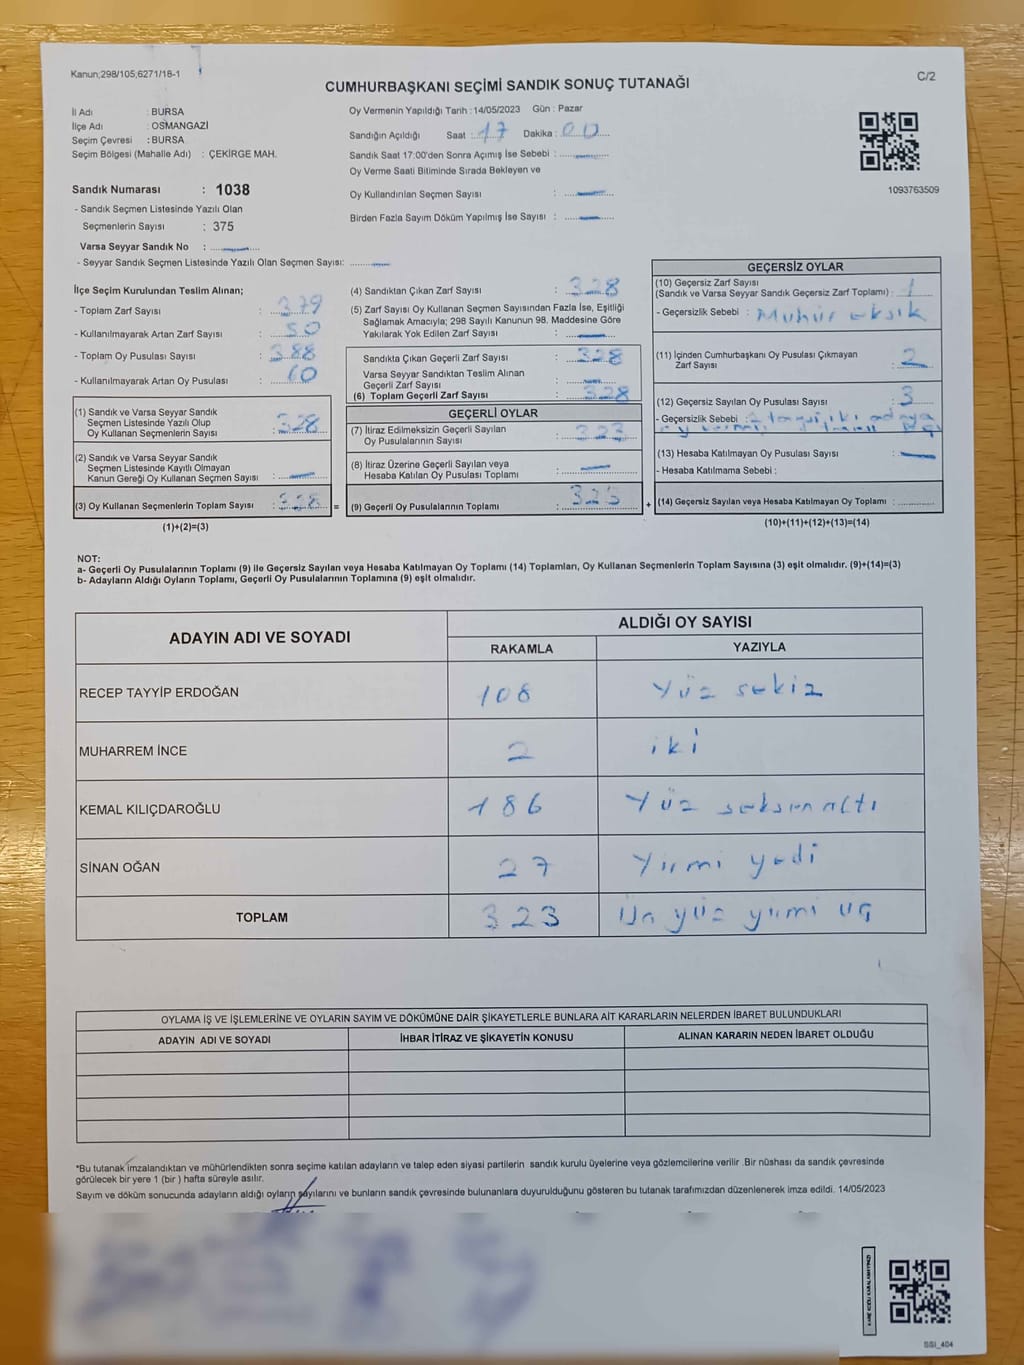 Kanun;298/105;6271/18-1
C/2
CUMHURBAŞKANI SEÇİMİ SANDIK SONUÇ TUTANAĞI
İl Adı : BURSA
İlçe Adı : OSMANGAZİ
Seçim Çevresi : BURSA
Seçim Bölgesi (Mahalle Adı) : ÇEKİRGE MAH.
Sandık Numarası : 1038
- Sandık Seçmen Listesinde Yazılı Olan
Seçmenlerin Sayısı : 375
Varsa Seyyar Sandık No :
- Seyyar Sandık Seçmen Listesinde Yazılı Olan Seçmen Sayısı:
Oy Vermenin Yapıldığı Tarih : 14/05/2023 Gün : Pazar
Sandığın Açıldığı Saat : 17 Dakika : 00
Sandık Saat 17:00'den Sonra Açımış İse Sebebi :
Oy Verme Saati Bitiminde Sırada Bekleyen ve
Oy Kullandırılan Seçmen Sayısı :
Birden Fazla Sayım Döküm Yapılmış İse Sayısı :
1093763509
İlçe Seçim Kurulundan Teslim Alınan;
- Toplam Zarf Sayısı : 379
- Kullanılmayarak Artan Zarf Sayısı : 50
- Toplam Oy Pusulası Sayısı : 388
- Kullanılmayarak Artan Oy Pusulası : 60
(1) Sandık ve Varsa Seyyar Sandık
Seçmen Listesinde Yazılı Olup
Oy Kullanan Seçmenlerin Sayısı : 328
(2) Sandık ve Varsa Seyyar Sandık
Seçmen Listesinde Kayıtlı Olmayan
Kanun Gereği Oy Kullanan Seçmen Sayısı :
(3) Oy Kullanan Seçmenlerin Toplam Sayısı : 328 =
(1)+(2)=(3)
(4) Sandıktan Çıkan Zarf Sayısı : 328
(5) Zarf Sayısı Oy Kullanan Seçmen Sayısından Fazla İse, Eşitliği
Sağlamak Amacıyla; 298 Sayılı Kanunun 98. Maddesine Göre
Yakılarak Yok Edilen Zarf Sayısı :
Sandıkta Çıkan Geçerli Zarf Sayısı : 328
Varsa Seyyar Sandıktan Teslim Alınan
Geçerli Zarf Sayısı :
(6) Toplam Geçerli Zarf Sayısı : 328
GEÇERLİ OYLAR
(7) İtiraz Edilmeksizin Geçerli Sayılan
Oy Pusulalarının Sayısı : 323
(8) İtiraz Üzerine Geçerli Sayılan veya
Hesaba Katılan Oy Pusulası Toplamı :
(9) Geçerli Oy Pusulalarının Toplamı : 323 +
GEÇERSİZ OYLAR
(10) Geçersiz Zarf Sayısı
(Sandık ve Varsa Seyyar Sandık Geçersiz Zarf Toplamı) : 1
- Geçersizlik Sebebi : Mühür eksik
(11) İçinden Cumhurbaşkanı Oy Pusulası Çıkmayan
Zarf Sayısı : 2
(12) Geçersiz Sayılan Oy Pusulası Sayısı : 3
- Geçersizlik Sebebi : iki adaya
oy
(13) Hesaba Katılmayan Oy Pusulası Sayısı :
- Hesaba Katılmama Sebebi :
(14) Geçersiz Sayılan veya Hesaba Katılmayan Oy Toplamı :
(10)+(11)+(12)+(13)=(14)
NOT:
a- Geçerli Oy Pusulalarının Toplamı (9) ile Geçersiz Sayılan veya Hesaba Katılmayan Oy Toplamı (14) Toplamları, Oy Kullanan Seçmenlerin Toplam Sayısına (3) eşit olmalıdır. (9)+(14)=(3)
b- Adayların Aldığı Oyların Toplamı, Geçerli Oy Pusulalarının Toplamına (9) eşit olmalıdır.
ADAYIN ADI VE SOYADI
ALDIĞI OY SAYISI
RAKAMLA YAZIYLA
RECEP TAYYİP ERDOĞAN 108 Yüz sekiz
MUHARREM İNCE 2 iki
KEMAL KILIÇDAROĞLU 186 Yüz seksen altı
SİNAN OĞAN 27 Yirmi yedi
TOPLAM 323 Üç yüz yirmi üç
OYLAMA İŞ VE İŞLEMLERİNE VE OYLARIN SAYIM VE DÖKÜMÜNE DAİR ŞİKAYETLERLE BUNLARA AİT KARARLARIN NELERDEN İBARET BULUNDUKLARI
ADAYIN ADI VE SOYADI İHBAR İTİRAZ VE ŞİKAYETİN KONUSU ALINAN KARARIN NEDEN İBARET OLDUĞU
*Bu tutanak imzalandıktan ve mühürlendikten sonra seçime katılan adayların ve talep eden siyasi partilerin sandık kurulu üyelerine veya gözlemcilerine verilir .Bir nüshası da sandık çevresinde
görülecek bir yere 1 (bir ) hafta süreyle asılır.
Sayım ve döküm sonucunda adayların aldığı oyların sayılarını ve bunların sandık çevresinde bulunanlara duyurulduğunu gösteren bu tutanak tarafımızdan düzenlenerek imza edildi. 14/05/2023
KARE KODU KARALAMAYINIZ!
SSI_404